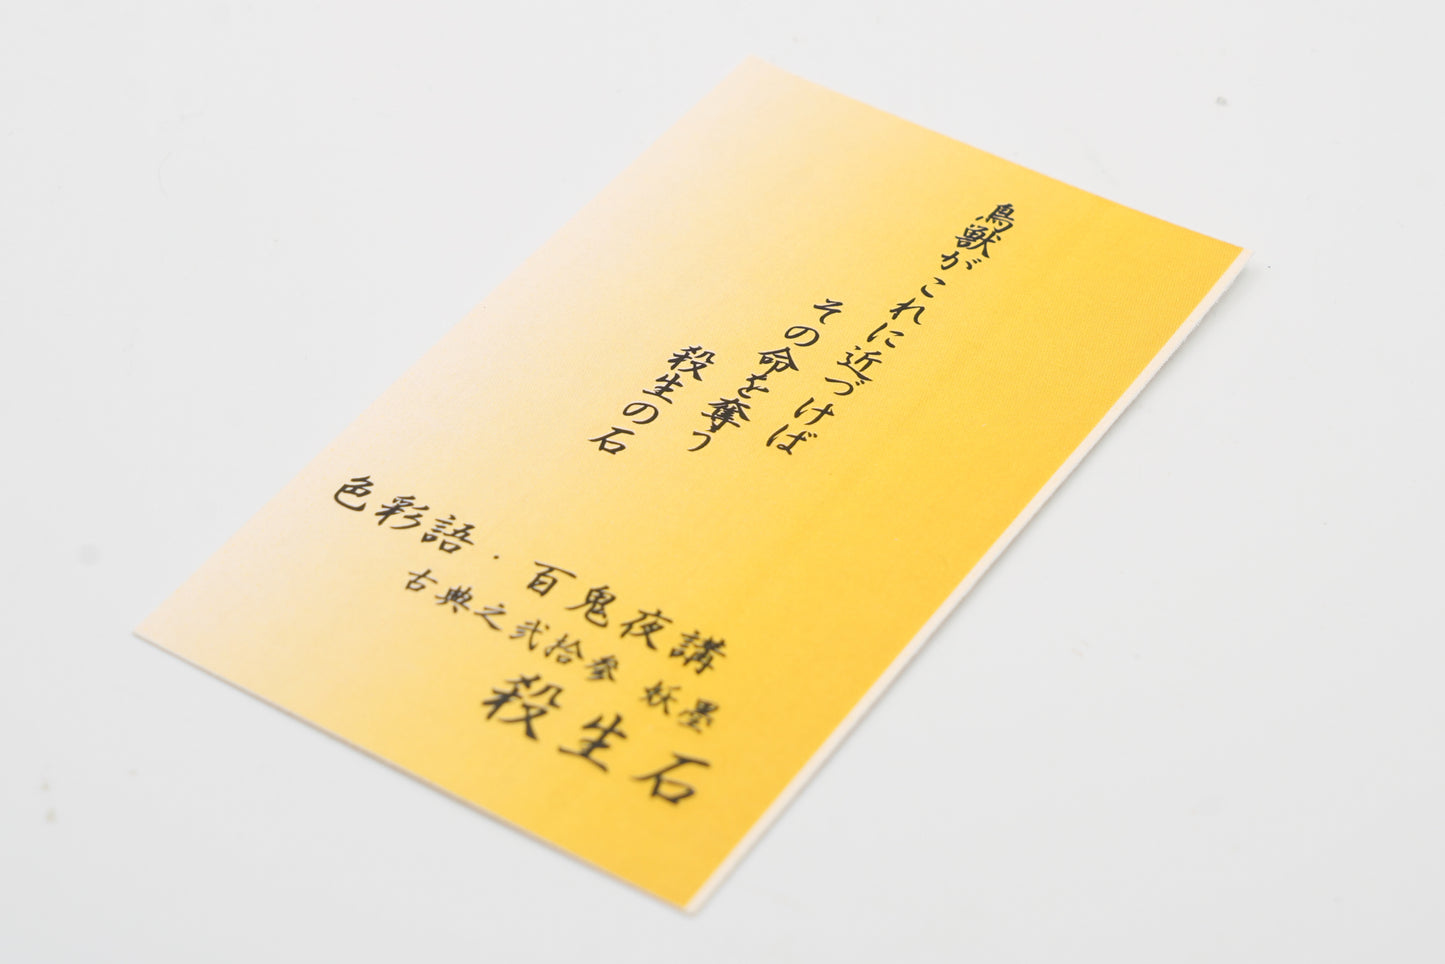 鳥獣がこれに近づけば
その命を奪う
殺生の石
色彩語・百鬼夜講
古典之弐拾参 妖墨
殺生石